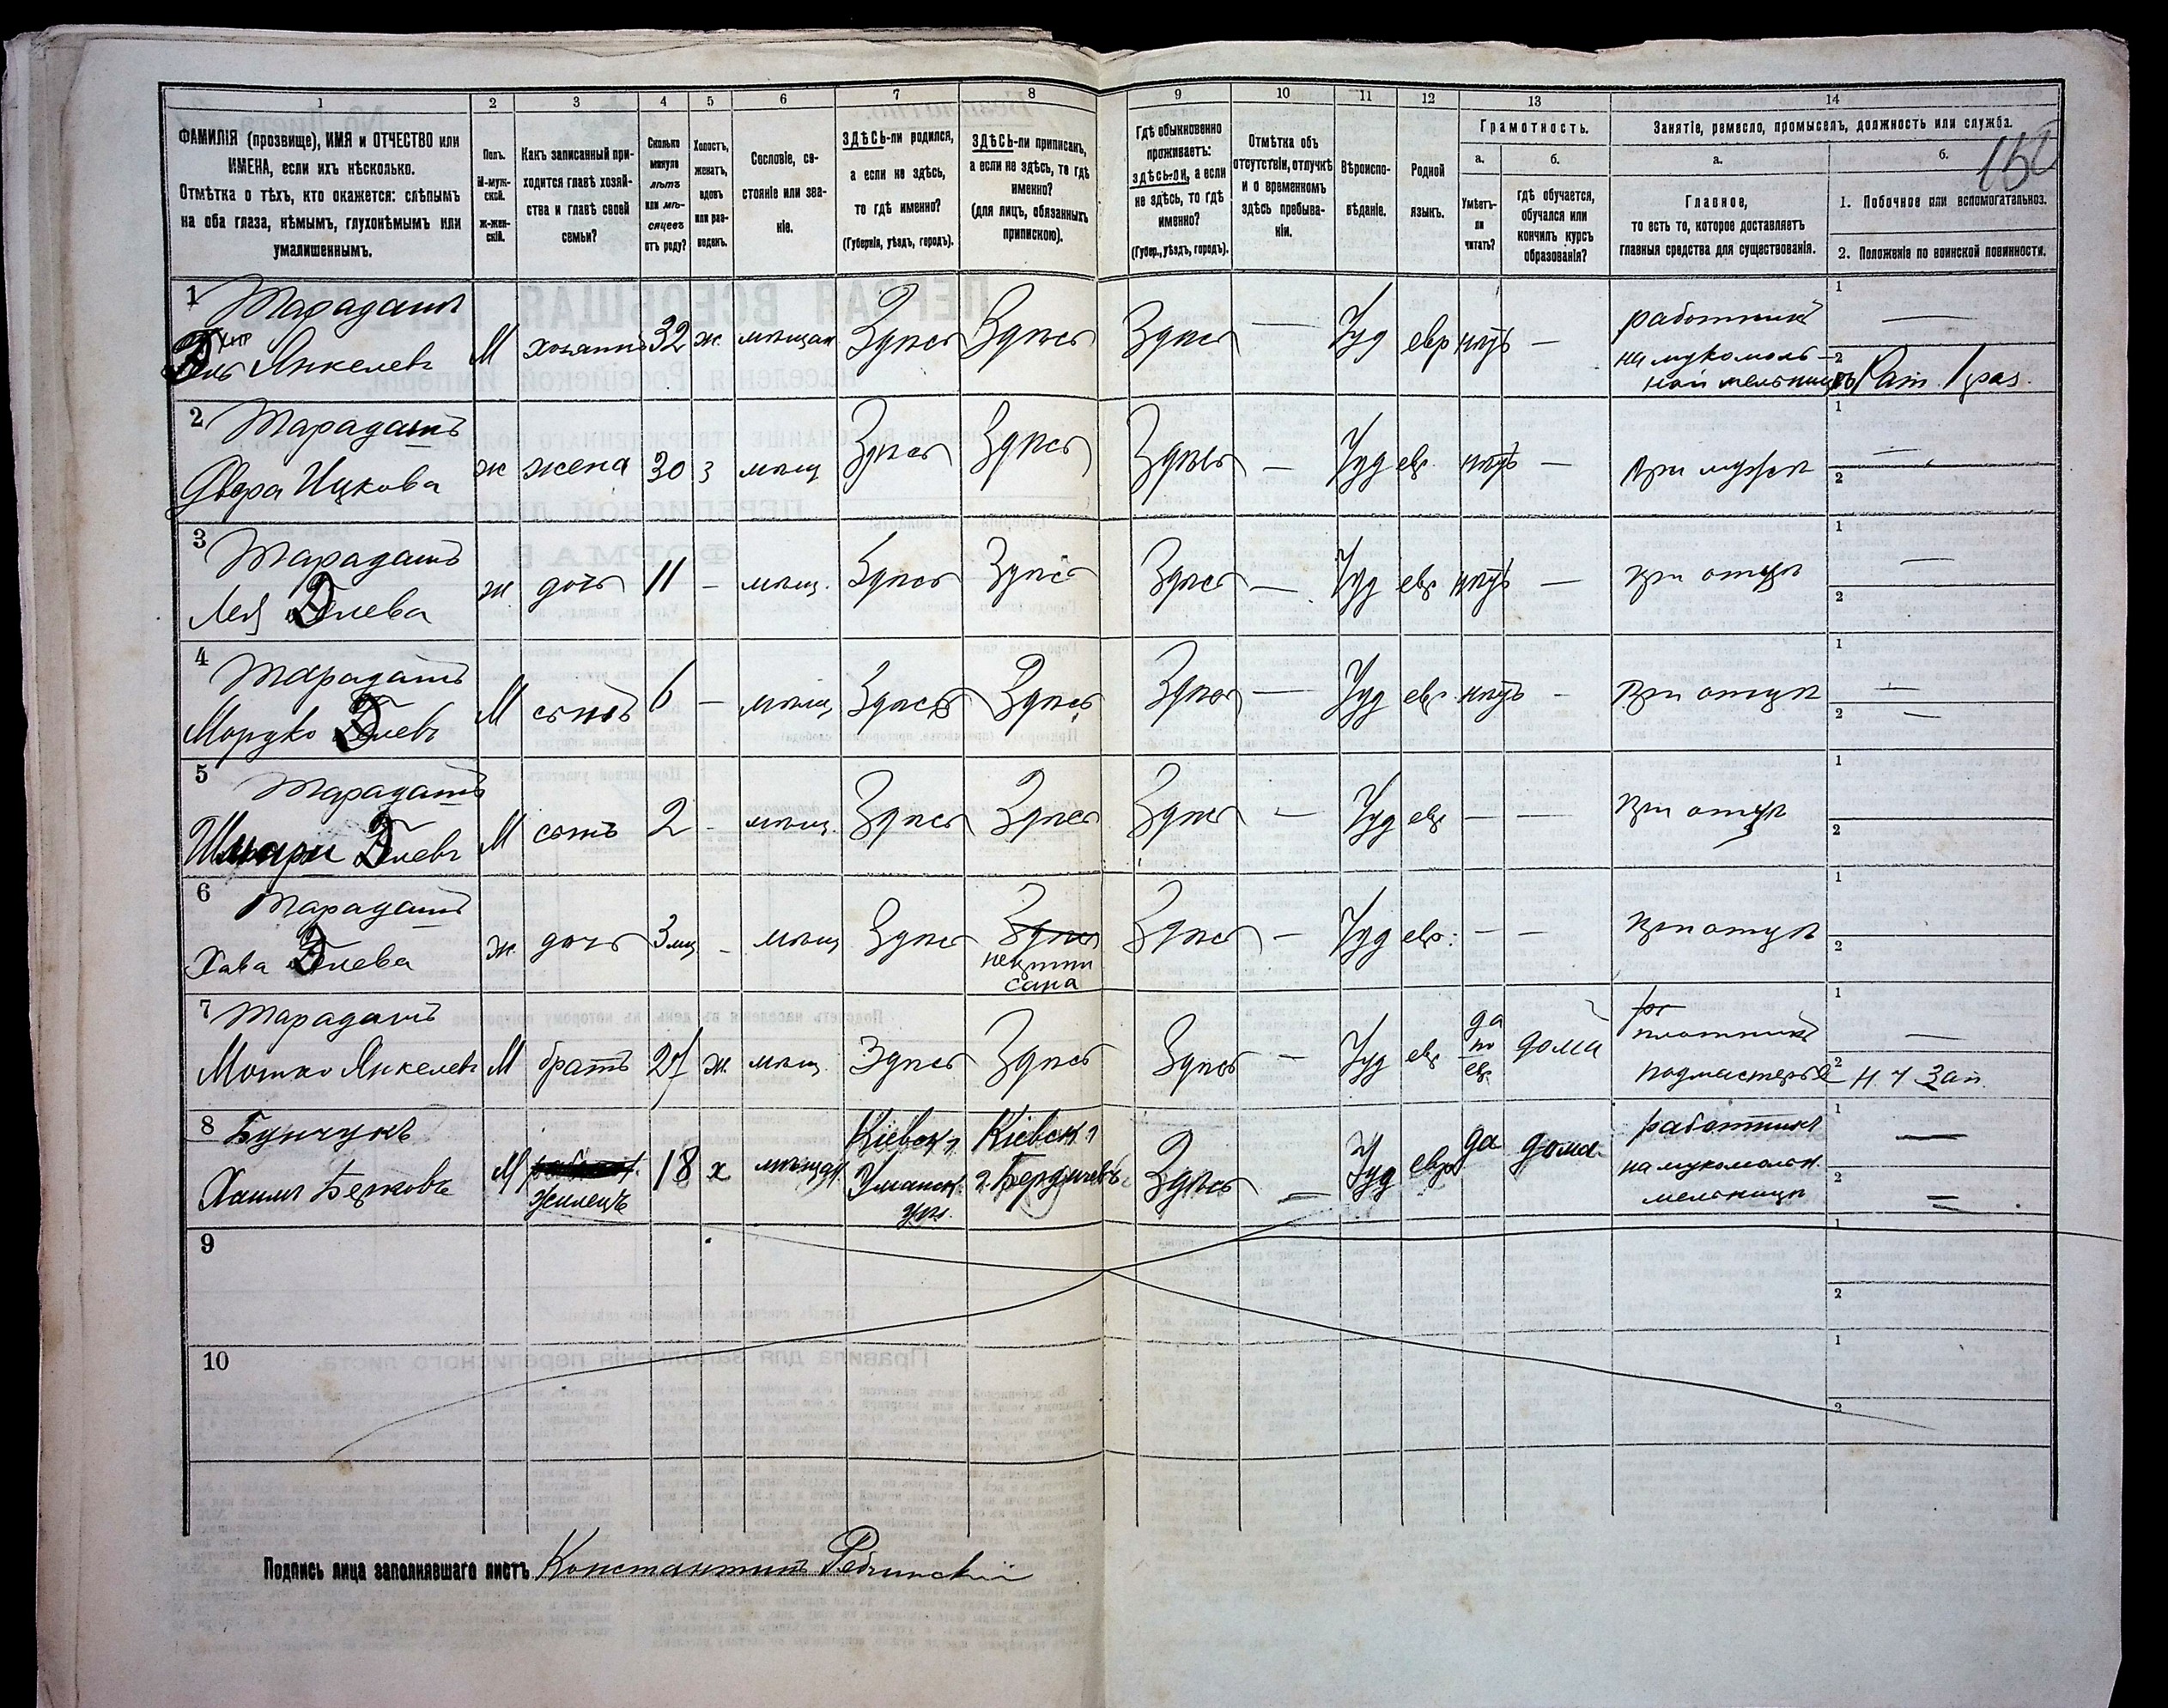 1 2 3 4 5 6 7 8 9 10 11 12 13 14
ФАМИЛІЯ (прозвище), ИМЯ и ОТЧЕСТВО или ИМЕНА, если ихъ нѣсколько.
Отмѣтка о тѣхъ, кто окажется: слѣпымъ на оба глаза, нѣмымъ, глухонѣмымъ или умалишеннымъ.
Полъ. М-мужской. ж-женскій.
Какъ записанный приходится главѣ хозяйства и главѣ своей семьи?
Сколько минуло лѣтъ или мѣсяцевъ отъ роду?
Холостъ, женатъ, вдовъ или разведенъ.
Сословіе, состояніе или званіе.
ЗДѢСЬ-ли родился, а если не здѣсь, то гдѣ именно? (Губернія, уѣздъ, городъ).
ЗДѢСЬ-ли приписанъ, а если не здѣсь, то гдѣ именно? (для лицъ, обязанныхъ припискою).
Гдѣ обыкновенно проживаетъ: здѣсь-ли, а если не здѣсь, то гдѣ именно? (Губер., уѣздъ, городъ).
Отмѣтка объ отсутствіи, отлучкѣ и о временномъ здѣсь пребываніи.
Вѣроисповѣданіе.
Родной языкъ.
Грамотность.
а. Умѣетъ-ли читать?
б. гдѣ обучается, обучался или кончилъ курсъ образованія?
Занятіе, ремесло, промыселъ, должность или служба.
а. Главное, то есть то, которое доставляетъ главныя средства для существованія.
б.
1. Побочное или вспомогательное.
2. Положеніе по воинской повинности.
1 Тарадашъ
Янкелевъ М хозяинъ 32 ж. мѣщан Здѣсь Здѣсь Здѣсь — Іуд евр нѣтъ — работникъ на мукомольной мельницѣ 1 — 2 Рат. 1 раз.
2 Тарадашъ
Двера Ицкова ж жена 30 з мѣщ Здѣсь Здѣсь Здѣсь — Іуд евр. нѣтъ — при мужѣ 1 — 2
3 Тарадашъ
Лея Элева ж. дочь 11 — мѣщ. Здѣсь Здѣсь Здѣсь — Іуд евр нѣтъ — при отцѣ 1 — 2
4 Тарадашъ
Мордко Элевъ М сынъ 6 — мѣщ Здѣсь Здѣсь Здѣсь — Іуд евр. нѣтъ — при отцѣ 1 — 2 —
5 Тарадашъ
Элевъ М сынъ 2 - мѣщ. Здѣсь Здѣсь Здѣсь — Іуд евр — — при отцѣ 1 2
6 Тарадашъ
Хава Элева ж. дочь 3 мц - мѣщ Здѣсь Здѣсь неприписана Здѣсь — Іуд евр. — — при отцѣ 1 2
7 Тарадашъ
Мошко Янкелевъ М братъ 27 ж. мѣщ. Здѣсь Здѣсь Здѣсь — Іуд евр да по евр. дома плотникъ подмастерье 1 — 2 н. ч Зап.
8 Бунчукъ
Хаимъ Берковъ М жилецъ 18 х мѣщан. Кіевск. г Уманск. уѣз. Кіевск. г г. Бердичевъ Здѣсь — Іуд евр да дома. работникъ на мукомольн. мельницѣ 1 — 2 —
9 1 2
10 1 2
Подпись лица заполнявшаго листъ Константинъ